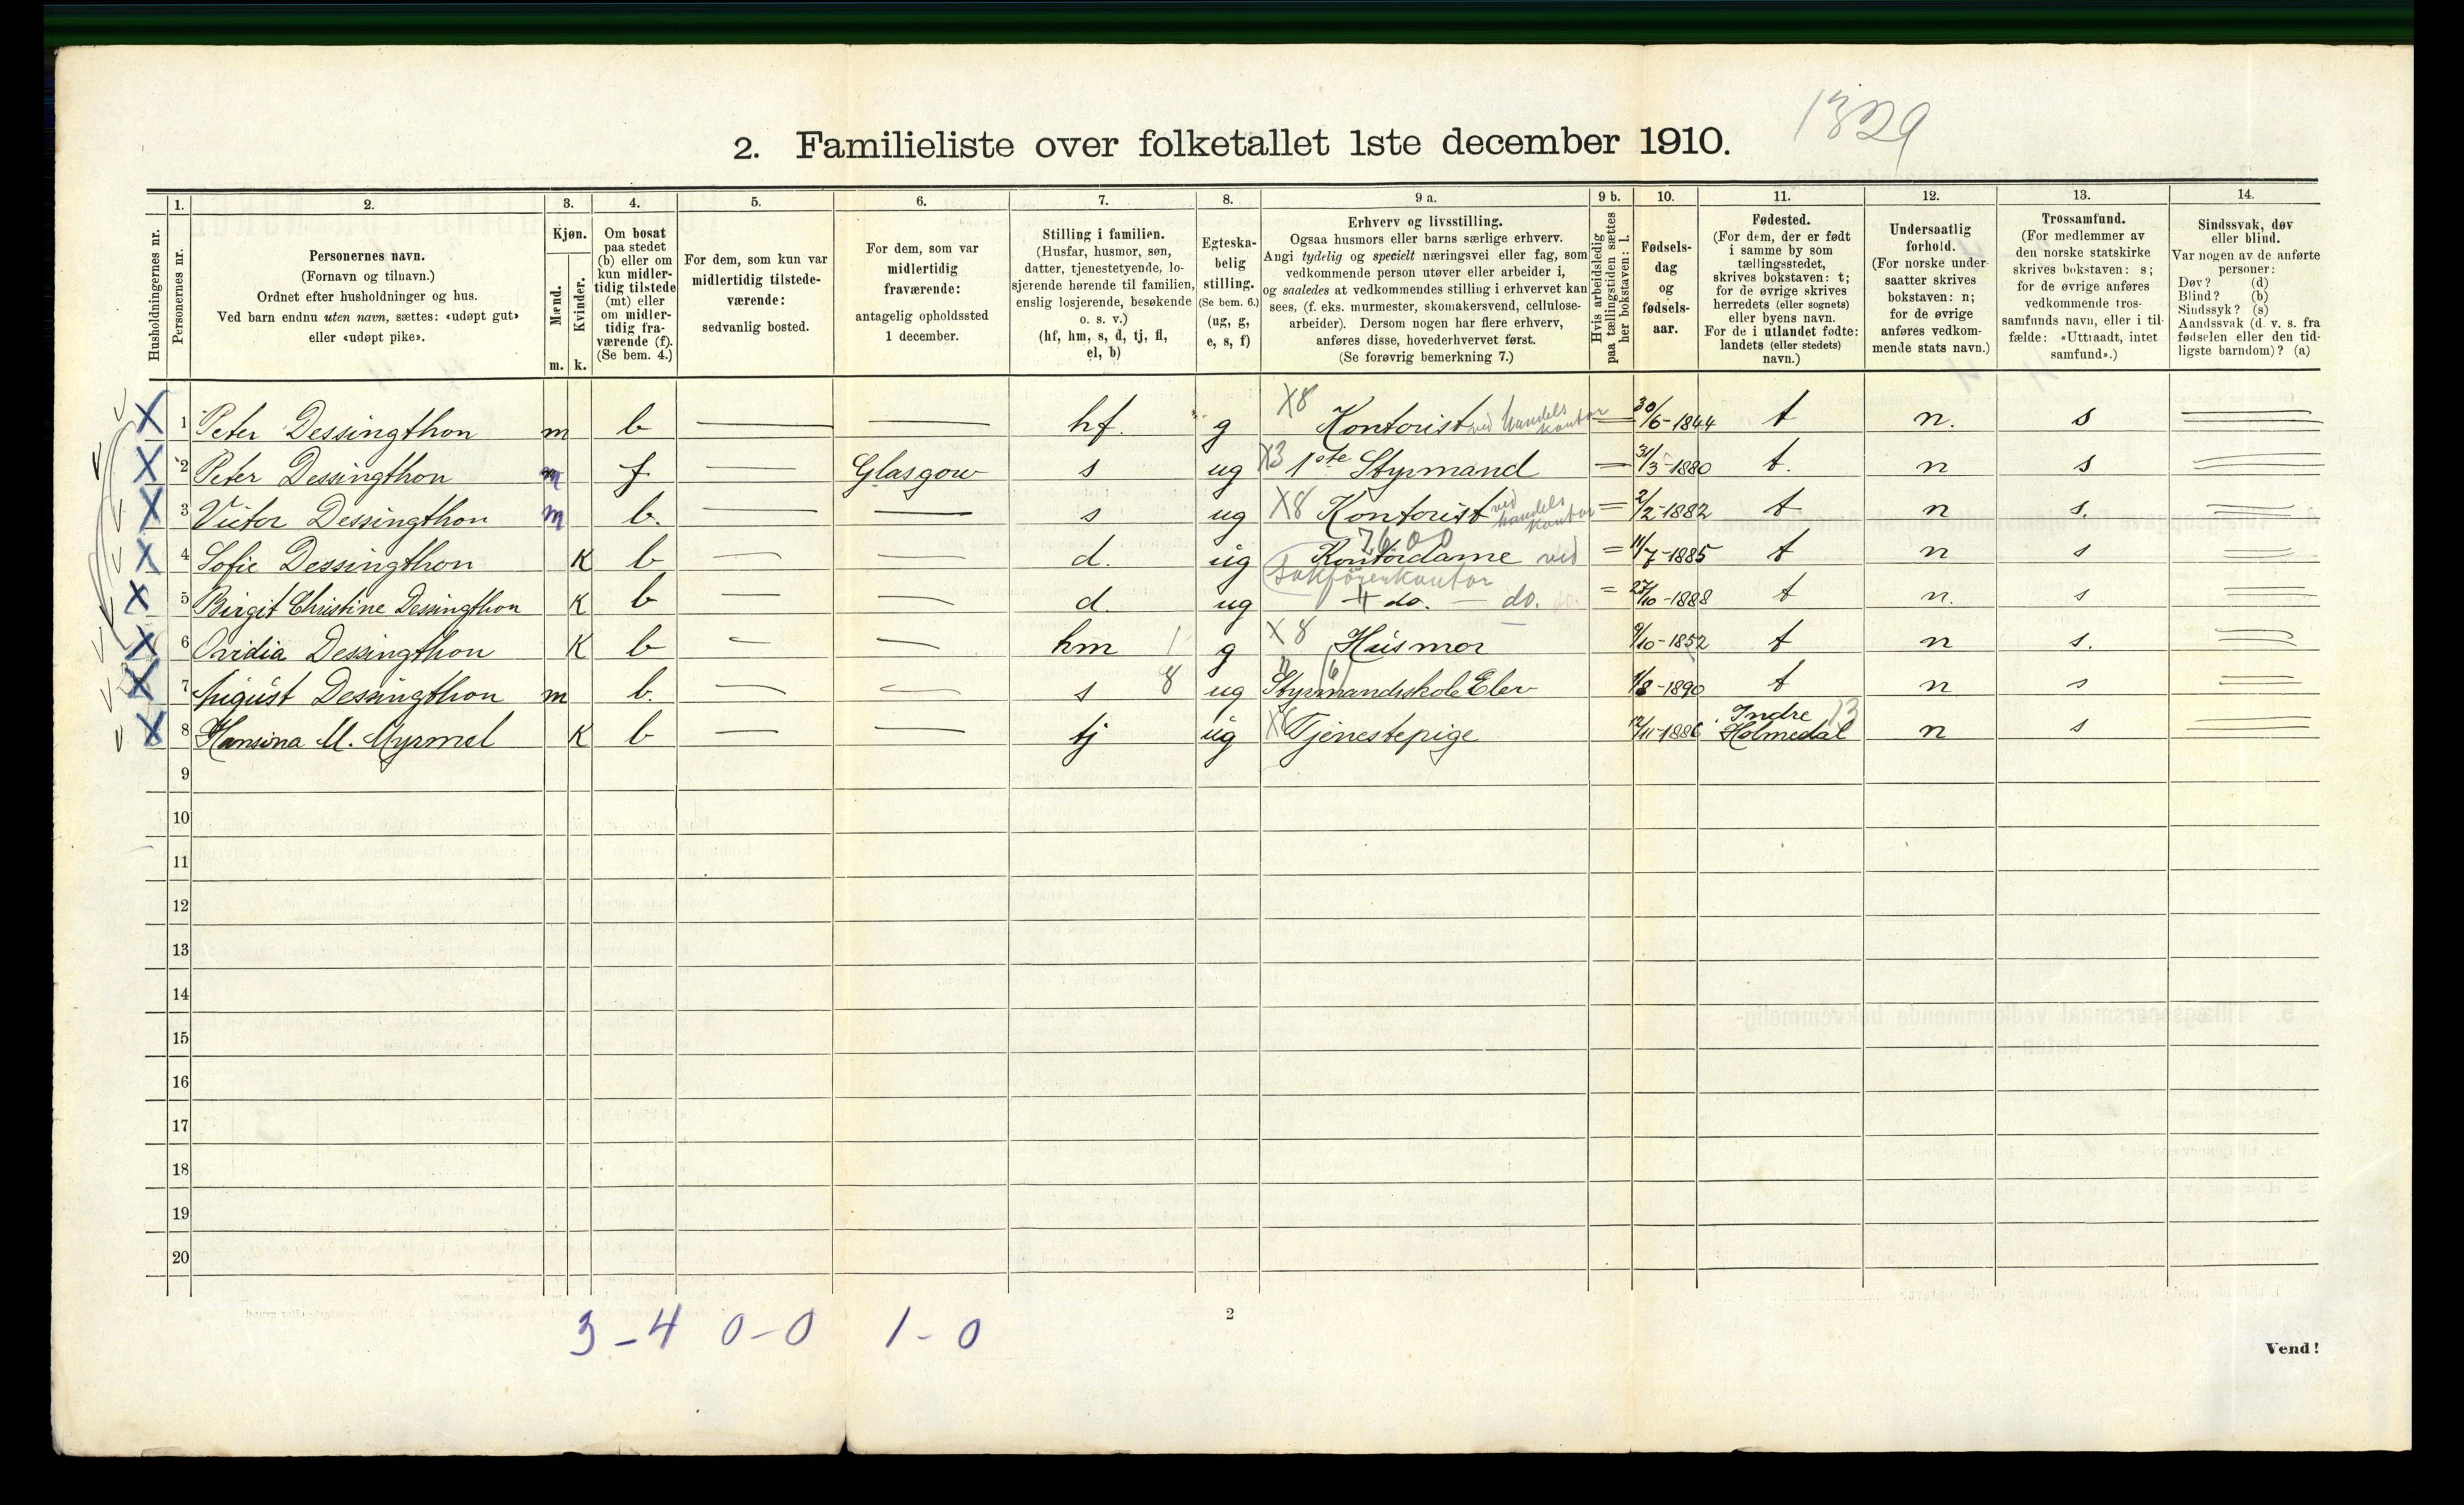 1329
2. Familieliste over folketallet 1ste december 1910.
1. 2. 3. 4. 5. 6. 7. 8. 9 a. 9 b. 10. 11. 12. 13. 14.
Husholdningernes nr.
Personernes nr.
Personernes navn.
(Fornavn og tilnavn.)
Ordnet efter husholdninger og hus.
Ved barn endnu uten navn, sættes: «udøpt gut»
eller «udøpt pike».
Kjøn.
Mænd.
Kvinder.
m. k.
Om bosat
paa stedet
(b) eller om
kun midler-
tidig tilstede
(mt) eller
om midler-
tidig fra-
værende (f).
(Se bem. 4.)
For dem, som kun var
midlertidig tilstede-
værende:
sedvanlig bosted.
For dem, som var
midlertidig
fraværende:
antagelig opholdssted
1 december.
Stilling i familien.
(Husfar, husmor, søn,
datter, tjenestetyende, lo-
sjerende hørende til familien,
enslig losjerende, besøkende
o. s. v.)
(hf, hm, s, d, tj, fl,
el, b)
Egteska-
belig
stilling.
(Se bem. 6.)
(ug, g,
e, s, f)
Erhverv og livsstilling.
Ogsaa husmors eller barns særlige erhverv.
Angi tydelig og specielt næringsvei eller fag, som
vedkommende person utøver eller arbeider i,
og saaledes at vedkommendes stilling i erhvervet kan
sees, (f. eks. murmester, skomakersvend, cellulose-
arbeider). Dersom nogen har flere erhverv,
anføres disse, hovederhvervet først.
(Se forøvrig bemerkning 7.)
Hvis arbeidsledig
paa tællingstiden sættes
her bokstaven: l.
Fødsels-
dag
og
fødsels-
aar.
Fødested.
(For dem, der er født
i samme by som
tællingsstedet,
skrives bokstaven: t;
for de øvrige skrives
herredets (eller sognets)
eller byens navn.
For de i utlandet fødte:
landets (eller stedets)
navn.)
Undersaatlig
forhold.
(For norske under-
saatter skrives
bokstaven: n;
for de øvrige
anføres vedkom-
mende stats navn.)
Trossamfund.
(For medlemmer av
den norske statskirke
skrives bokstaven: s;
for de øvrige anføres
vedkommende tros-
samfunds navn, eller i til-
fælde: «Uttraadt, intet
samfund».)
Sindssvak, døv
eller blind.
Var nogen av de anførte
personer:
Døv? (d)
Blind? (b)
Sindssyk? (s)
Aandssvak (d. v. s. fra
fødselen eller den tid-
ligste barndom)? (a)
X 1 Peter Dessingthon m b — — hf. g X8 Kontorist ved handels kontor — 30/6-1844 t n. s
X 2 Peter Dessingthon m f — Glasgow s ug X3 1ste Styrmand — 31/3-1880 t. n s
X 3 Victor Dessingthon m b. — — s ug X8 Kontorist ved handels kontor = 2/2-1882 t n s.
X 4 Sofie Dessingthon K b — — d. ug Kontordame ved sakførerkontor = 11/7-1885 t n s
X 5 Birgit Christine Dessingthon K b — — d. ug do. — do. = 27/10-1888 t n. s
X 6 Ovidia Dessingthon K b — — hm 1 g X8 Husmor 9/10-1852 t n s.
X 7 August Dessingthon m b. — — s 8 ug Styrmandsskole Elev 1/8-1890 t n s
X 8 Hansina M. Myrmel K b — — tj ug Tjenestepige 12/11-1886 Indre Holmedal 13 n s
9
10
11
12
13
14
15
16
17
18
19
20
3-4 0-0 1-0
2
Vend!